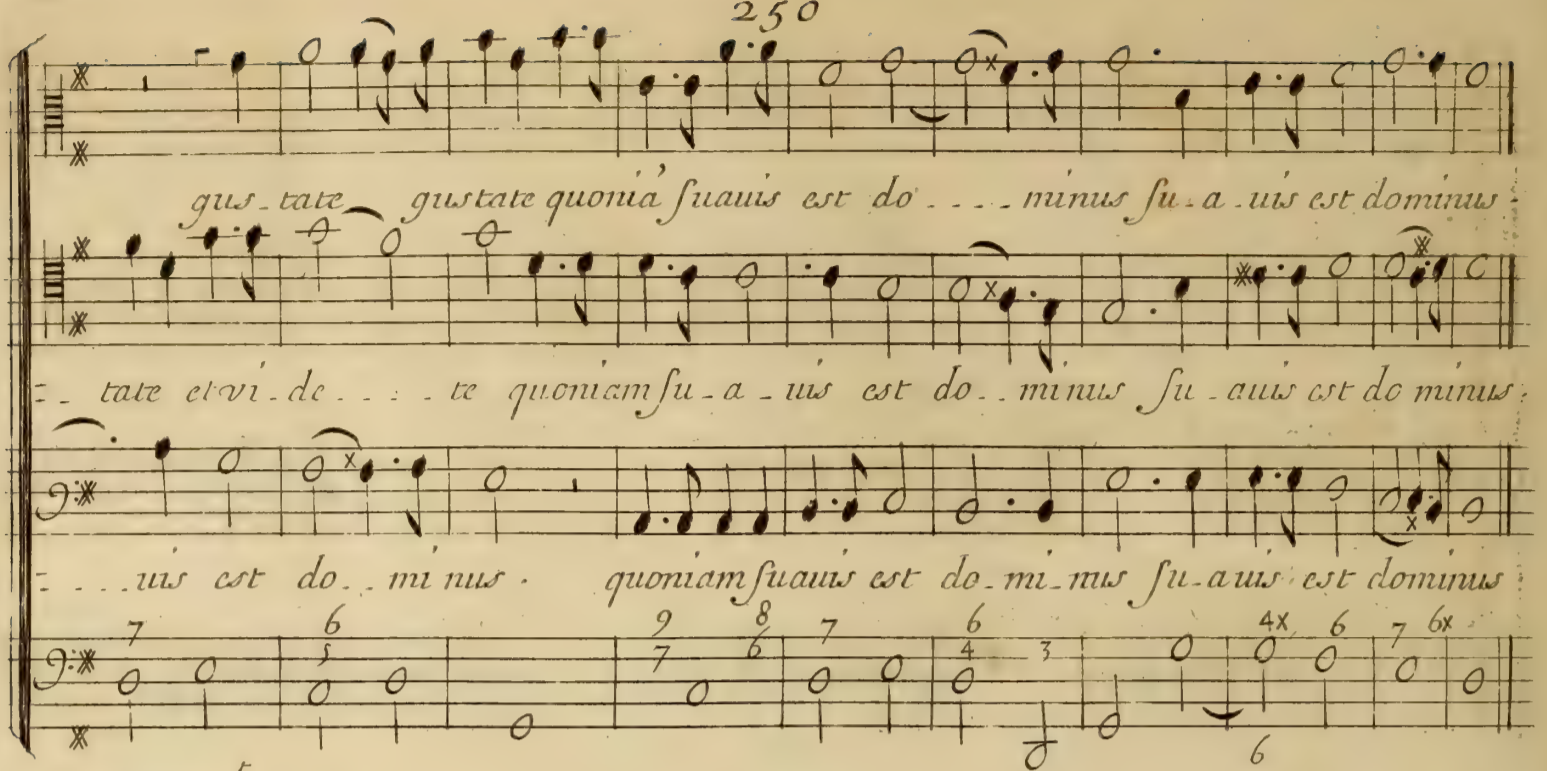 250
gus-tate gustate quonia' suauis est do.... minus su-a-uis est dominus
:. tate et vi.de....:. te quoniam su-a-uis est do.. minus su-auis est do minus:
-....uis est do.. mi nus. quoniam suauis est do-mi-nus su-auis est dominus
7 6 9 8 7 6 4x 6 7 6x
5 7 6 4 3
6